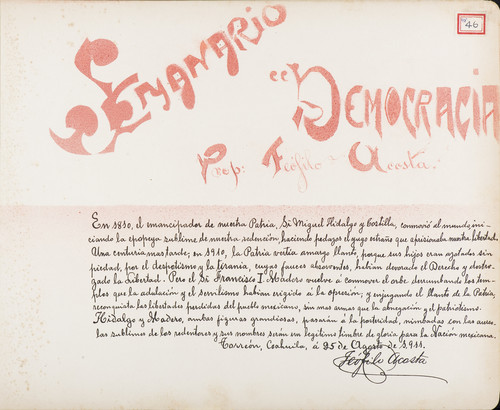 Nº 46
Semanario
"Democracia
Prop: Teófilo Acosta.
En 1810, el emancipador de nuestra Patria, Sr Miguel Hidalgo y Costilla, conmovió al mundo, ini-
ciando la epopeya sublime de nuestra redención, haciendo pedazos el yugo extraño que aprisionaba nuestra libertad.
Una centuria mas tarde; en 1910, la Patria vertía amargo llanto, porque sus hijos eran azotados sin
piedad, por el despotismo y la tiranía, cuyas fauces absorventes, habían devorado el Derecho y destro-
zado la Libertad. Pero el Sr Francisco I. Madero vuelve á conmover el orbe derrumbando los tem-
plos que la adulación y el servilismo habían erigido á la opresión; y enjugando el llanto de la Patria,
reconquista las libertades perdidas del pueblo mexicano, sin mas armas que la abnegación y el patriotismo.
Hidalgo y Madero, ambas figuras grandiosas, pasarán á la posteridad, nimbadas con las aureo-
las sublimes de los redentores y sus nombres serán un legítimo timbre de gloria para la Nación mexicana.
Torreón, Coahuila, á 25 de Agosto de 1911.
Teófilo Acosta